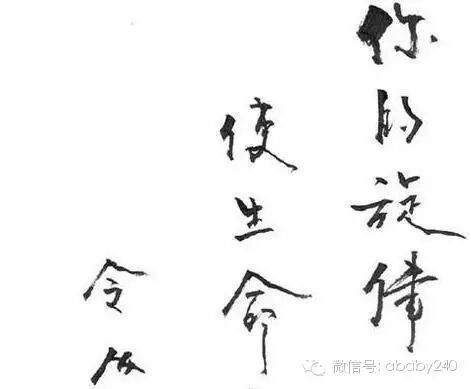 你的旋律
使生命
令
微信号: ababy240